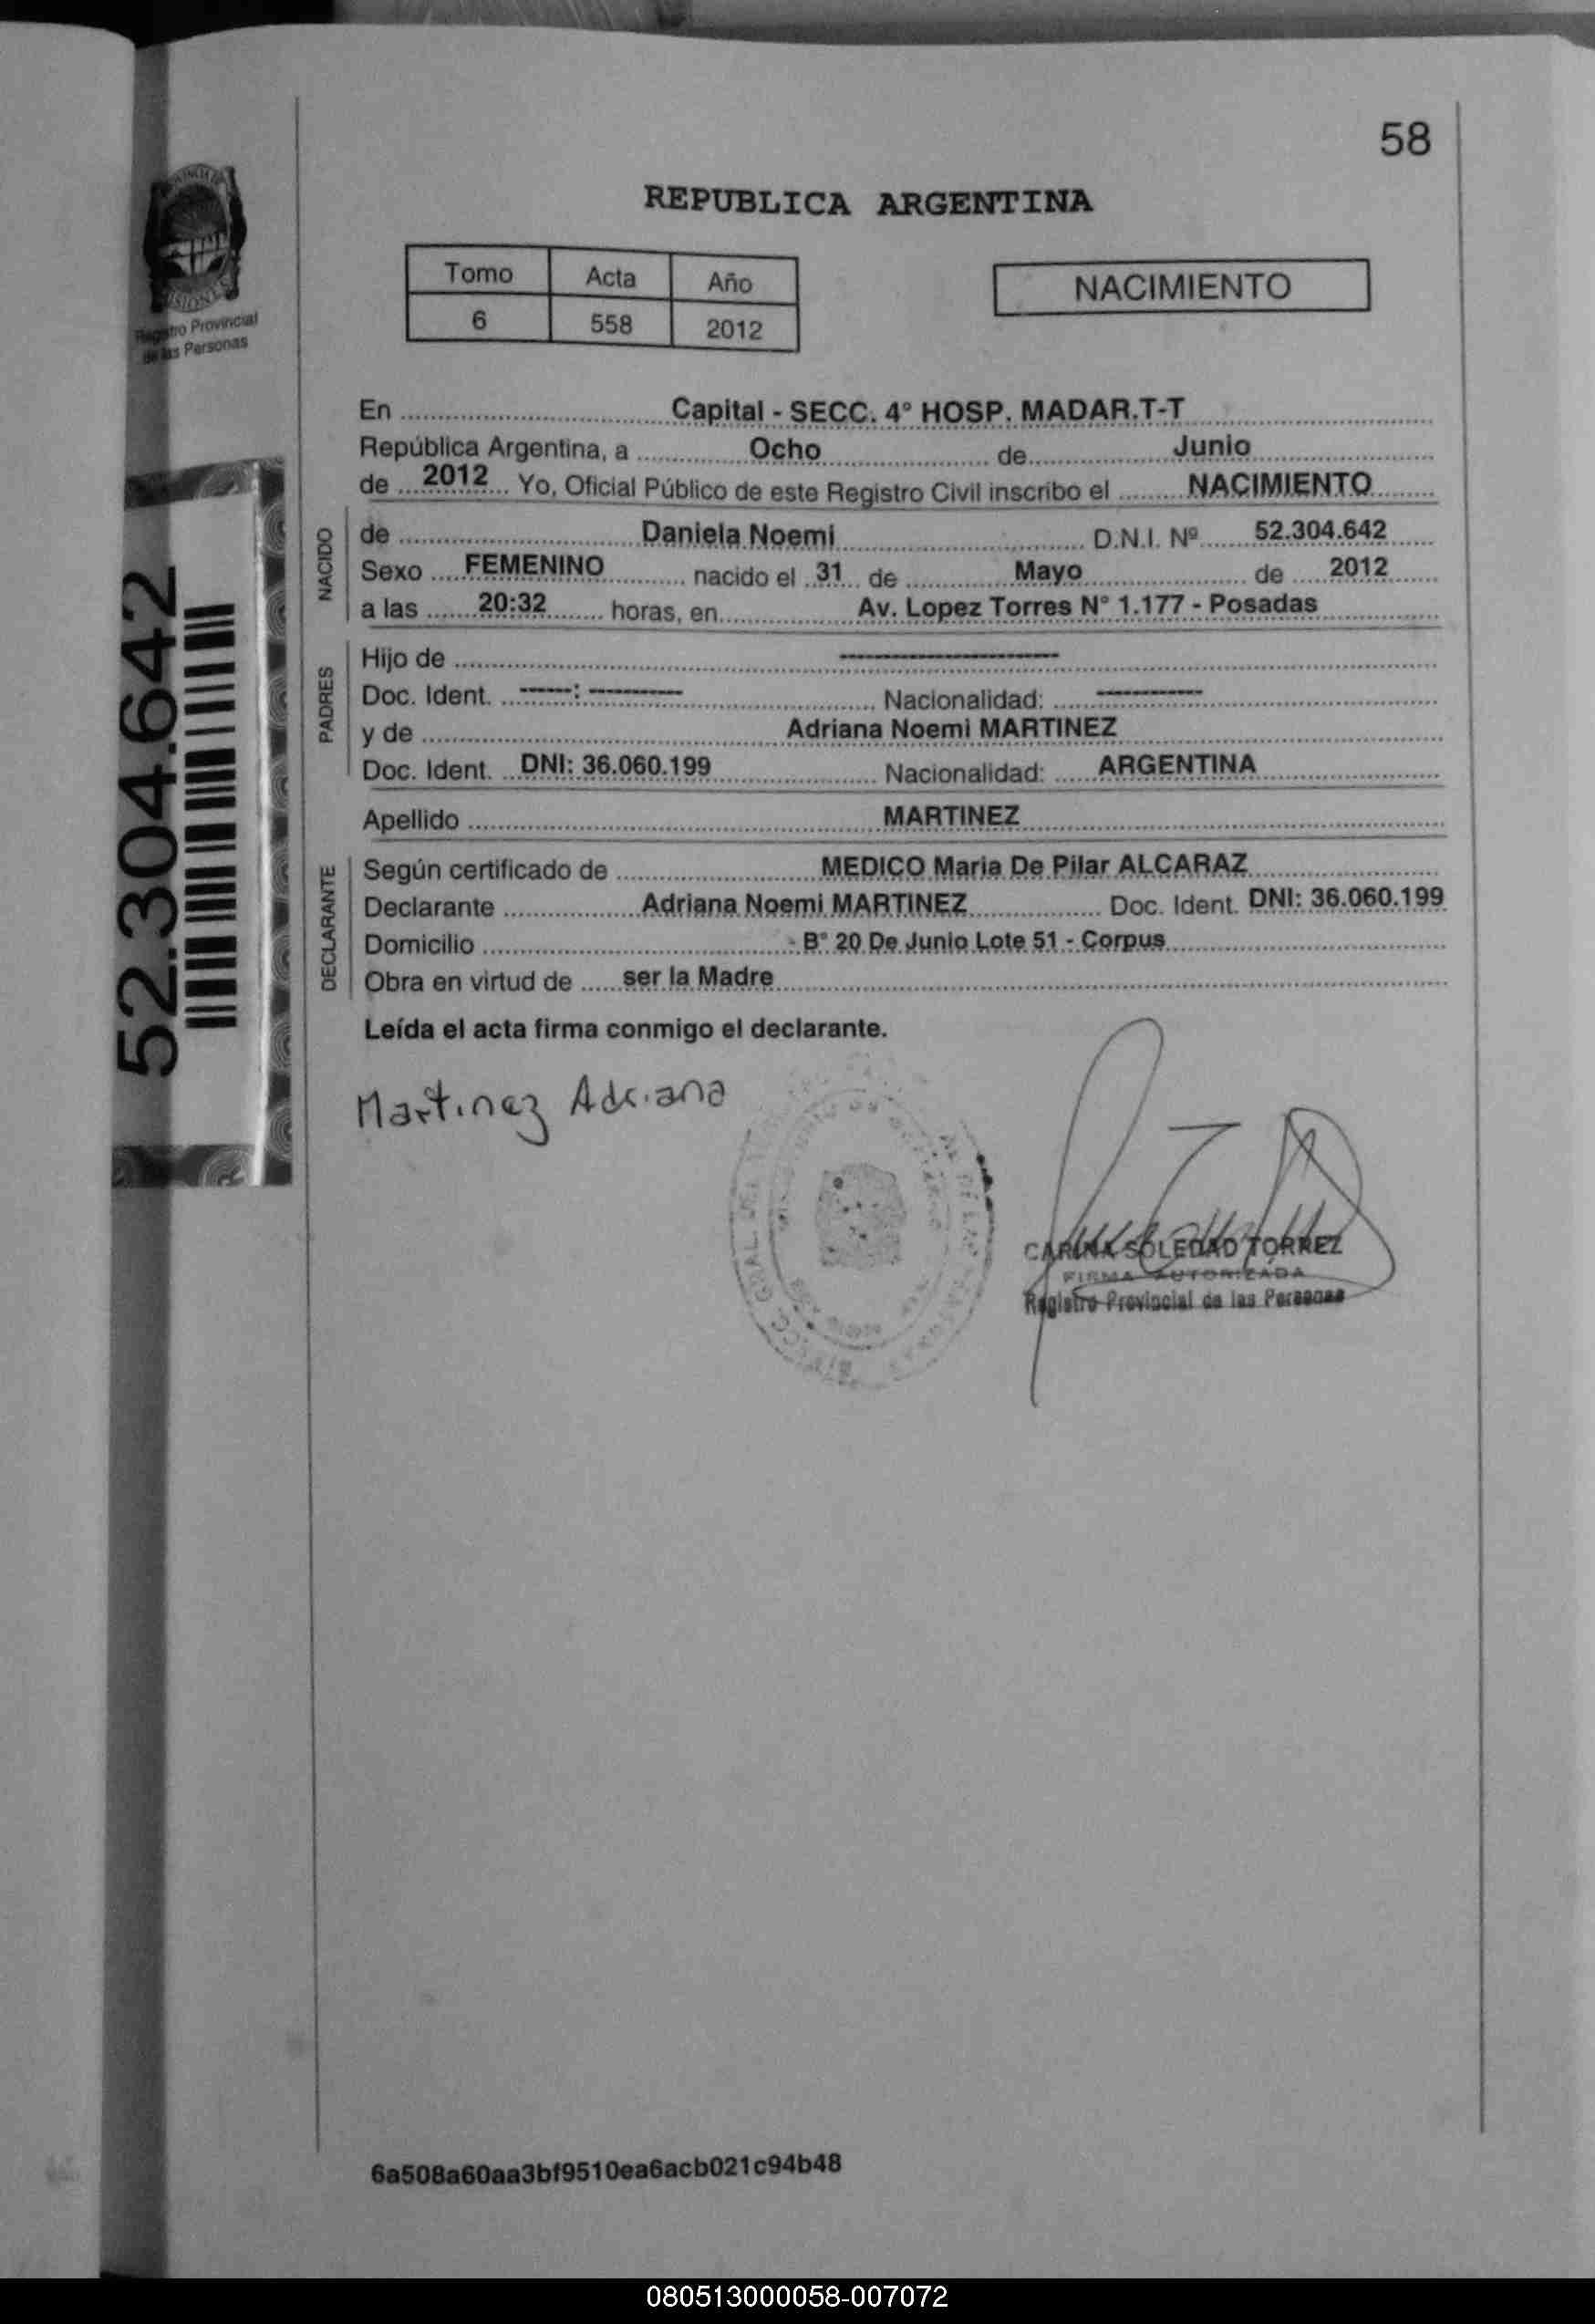 58
PROVINCIA DE
MISIONES
Registro Provincial
de las Personas
REPUBLICA ARGENTINA
Tomo Acta Año
6 558 2012
NACIMIENTO
En Capital - SECC. 4° HOSP. MADAR.T-T
República Argentina, a Ocho de Junio
de 2012 Yo, Oficial Público de este Registro Civil inscribo el NACIMIENTO
NACIDO
de Daniela Noemi D.N.I. Nº 52.304.642
Sexo FEMENINO nacido el 31 de Mayo de 2012
a las 20:32 horas, en Av. Lopez Torres N° 1.177 - Posadas
PADRES
Hijo de ----------
Doc. Ident. -----: --------- Nacionalidad: ----------
y de Adriana Noemi MARTINEZ
Doc. Ident. DNI: 36.060.199 Nacionalidad: ARGENTINA
Apellido MARTINEZ
DECLARANTE
Según certificado de MEDICO Maria De Pilar ALCARAZ
Declarante Adriana Noemi MARTINEZ Doc. Ident. DNI: 36.060.199
Domicilio - B° 20 De Junio Lote 51 - Corpus
Obra en virtud de ser la Madre
Leída el acta firma conmigo el declarante.
Martinez Adriana
CARINA SOLEDAD TORREZ
FIRMA AUTORIZADA
Registro Provincial de las Personas
52.304.642
6a508a60aa3bf9510ea6acb021c94b48
080513000058-007072